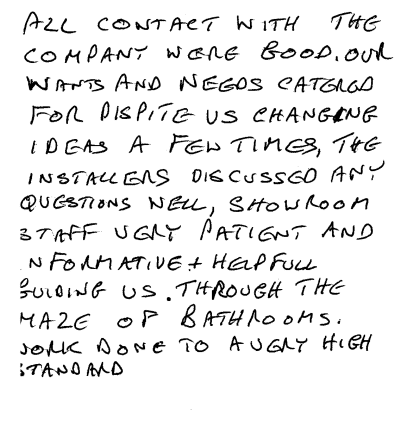 ALL CONTACT WITH THE
COMPANY WERE GOOD. OUR
WANTS AND NEEDS CATERED
FOR DISPITE US CHANGING
IDEAS A FEW TIMES, THE
INSTALLERS DISCUSSED ANY
QUESTIONS WELL, SHOWROOM
STAFF VERY PATIENT AND
NFORMATIVE + HELPFULL
GUIDING US. THROUGH THE
MAZE OF BATHROOMS.
WORK DONE TO A VERY HIGH
STANDARD